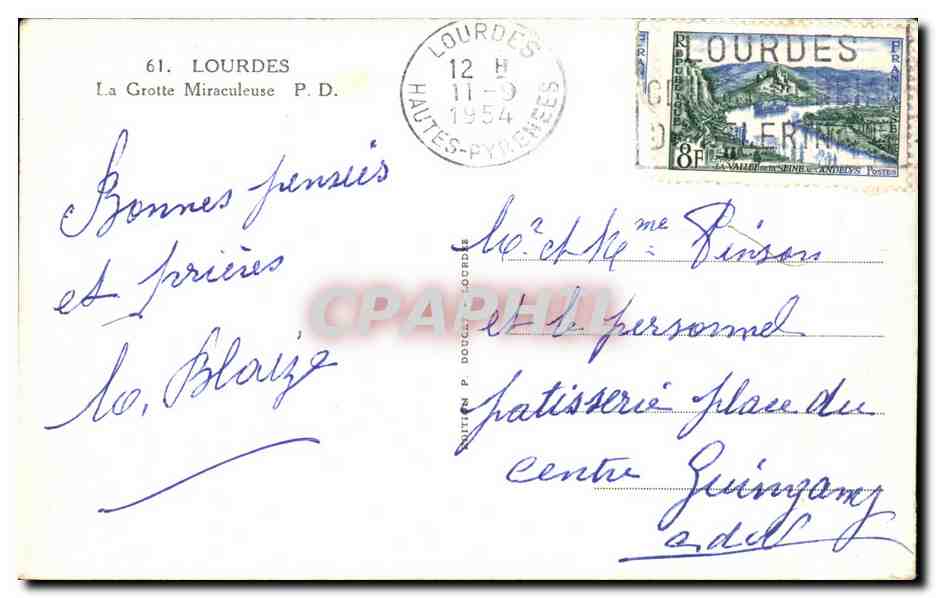 61. LOURDES
La Grotte Miraculeuse P. D.
LOURDES
12 H
11-9
1954
HAUTES-PYRENEES
LOURDES
REPUBLIQUE
FRANÇAISE
8F
LA VALLEE DE LA SEINE AUX ANDELYS
POSTES
Bonnes pensées
et prières
M. Blaize
EDITION P. DOUCET - LOURDES
CPAPHIL
Mr et Mme Pinson
et le personnel
patisserie place du
centre Guingamp
c-d-N